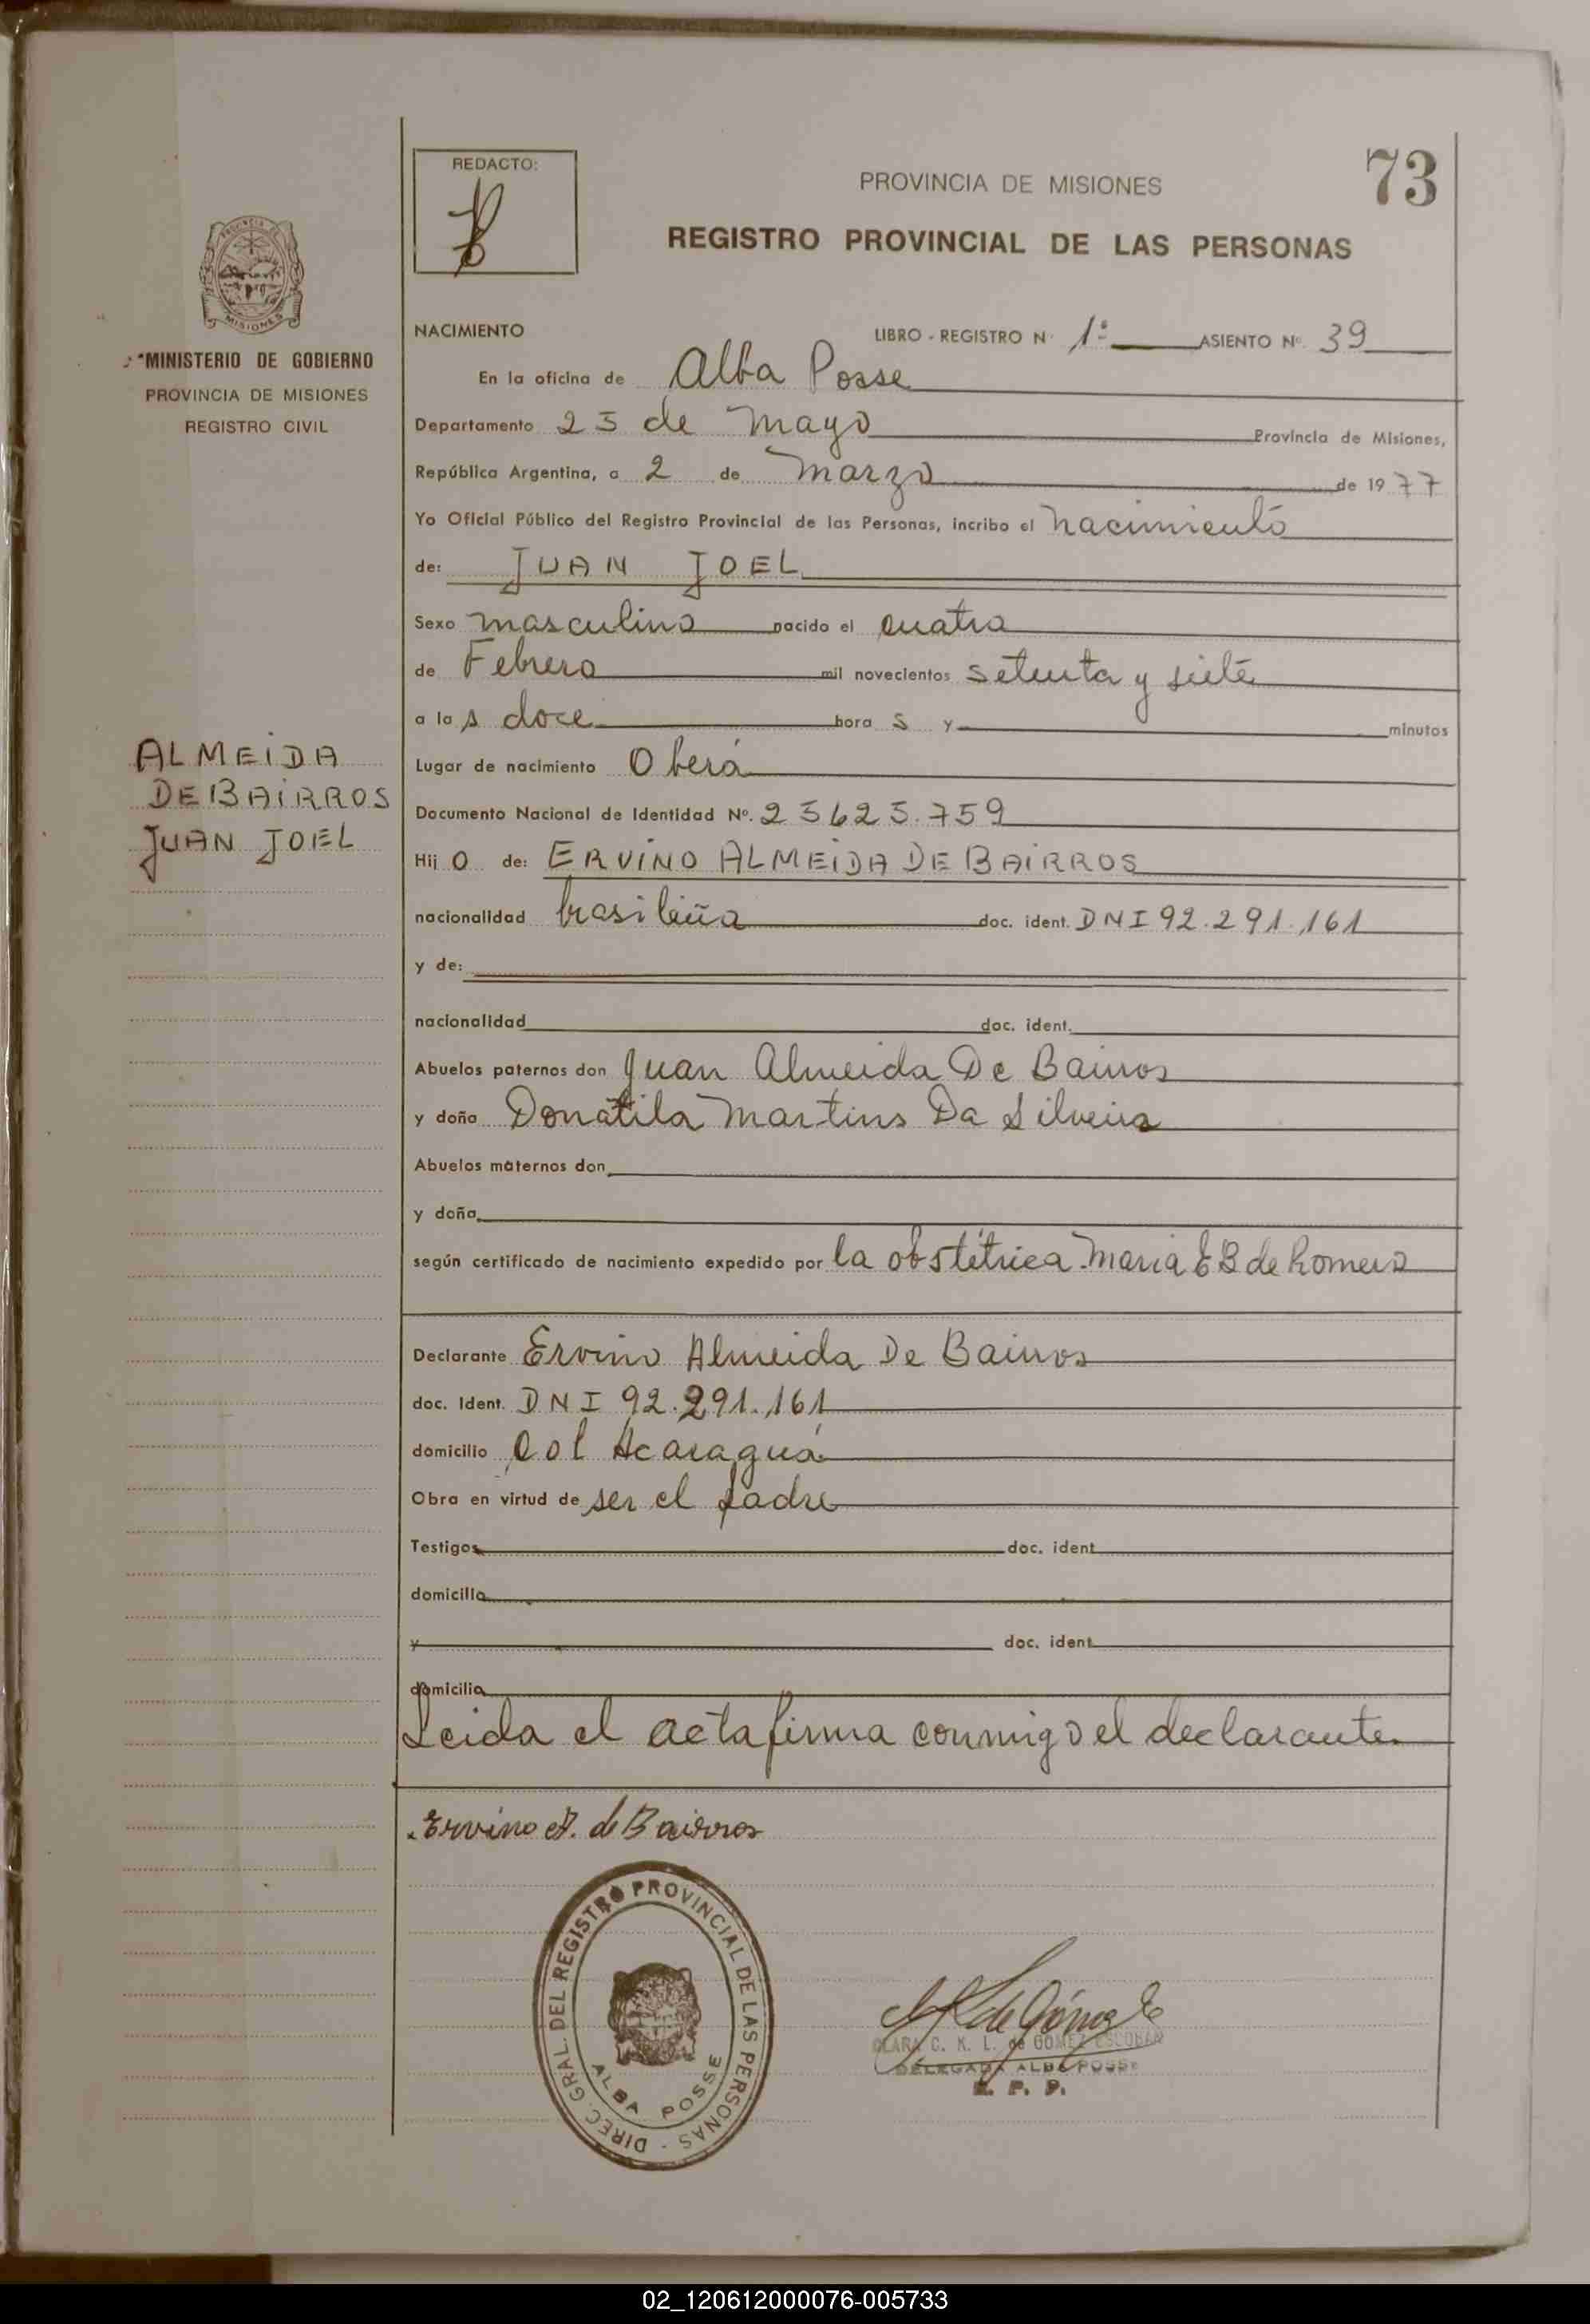 REDACTO:
PROVINCIA DE MISIONES
73
REGISTRO PROVINCIAL DE LAS PERSONAS
MISIONES
"MINISTERIO DE GOBIERNO
PROVINCIA DE MISIONES
REGISTRO CIVIL
NACIMIENTO LIBRO - REGISTRO N° 1° ASIENTO N° 39
En la oficina de Alba Posse
Departamento 25 de Mayo Provincia de Misiones,
República Argentina, a 2 de Marzo de 1977
Yo Oficial Público del Registro Provincial de las Personas, incribo el nacimiento
de: JUAN JOEL
Sexo masculino nacido el cuatro
de Febrero mil novecientos setenta y siete
a las doce horas y minutos
Lugar de nacimiento Oberá
ALMEIDA
DE BAIRROS
JUAN JOEL
Documento Nacional de Identidad N°. 25625.759
Hijo de: ERVINO ALMEIDA DE BAIRROS
nacionalidad brasileña doc. ident. DNI 92.291.161
y de:
nacionalidad doc. ident.
Abuelos paternos don Juan Almeida De Bairros
y doña Donatila Martins Da Silveira
Abuelos maternos don
y doña
según certificado de nacimiento expedido por la obstétrica Maria E B de Romero
Declarante Ervino Almeida De Bairros
doc. Ident. DNI 92.291.161
domicilio Col Acaraguá
Obra en virtud de ser el padre
Testigos doc. ident
domicilio
y doc. ident
domicilio
Leida el acta firma conmigo el declarante
Ervino A. de Bairros
DIREC. GRAL. DEL REGISTRO PROVINCIAL DE LAS PERSONAS -
ALBA POSSE
CLARA C. K. L. de GOMEZ ESCOBAR
DELEGADA ALBA POSSE
R. P. P.
02_120612000076-005733